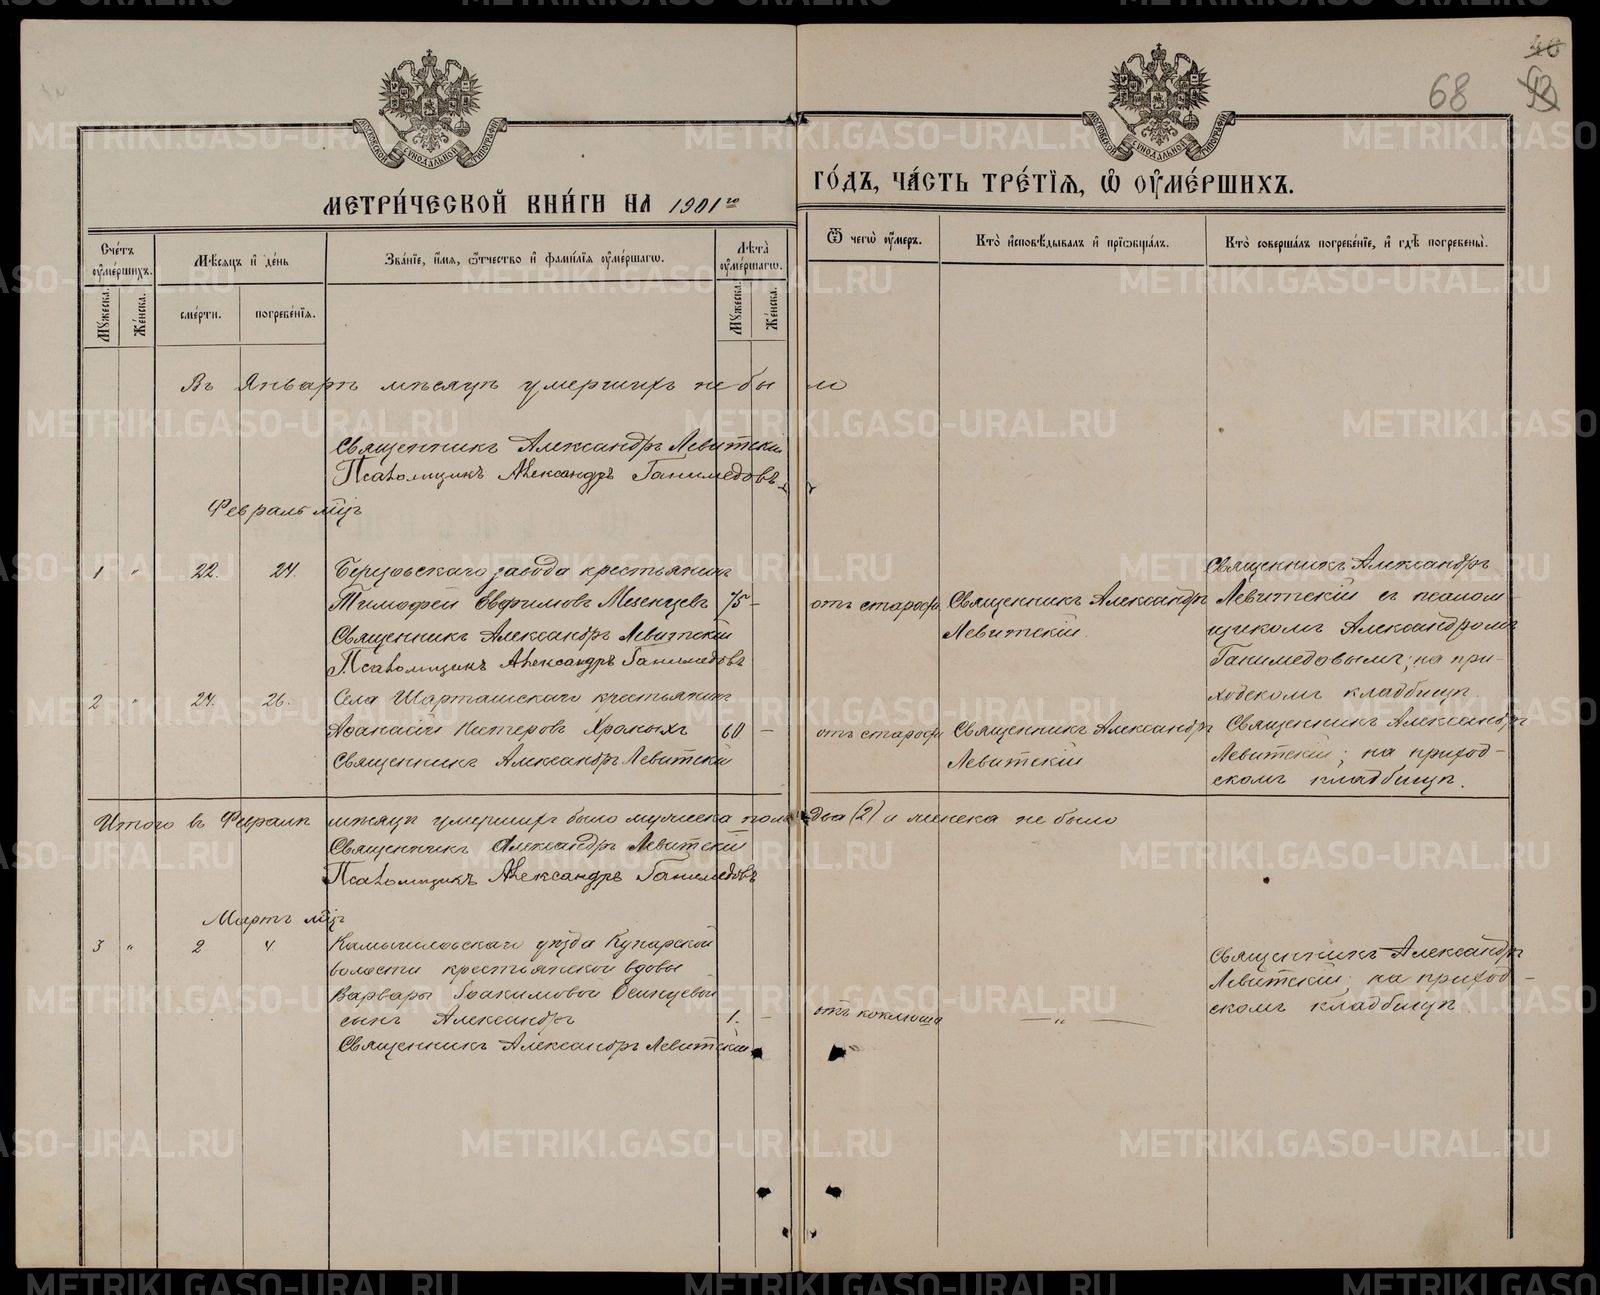 40
68
МЕТРИ́ЧЕСКОЙ КНИ́ГИ НА 1901го
ГО́ДЪ, ЧА́СТЬ ТРЕ́ТІѦ, Ѡ҆ ОУ҆МЕ́РШИХЪ.
МОСКОВСКОЙ СѴНОДАЛЬНОЙ ТИПОГРАФІИ
МОСКОВСКОЙ СѴНОДАЛЬНОЙ ТИПОГРАФІИ
Сче́тъ оу҆ме́ршихъ.
Мꙋжеска.
Же́нска.
Мѣ́сѧцъ и҆ де́нь
сме́рти.
погребе́нїѧ.
Зва́нїе, и҆́мѧ, ѻ҆́тчество и҆ фамилїѧ оу҆ме́ршагѡ.
Лѣ́та оу҆ме́ршагѡ.
Мꙋжеска.
Же́нска.
Ѿ чегѡ̀ оу҆́меръ.
Кто̀ и҆сповѣ́дывалъ и҆ прїѡбща́лъ.
Кто̀ соверша́лъ погребе́нїе, и҆ гдѣ̀ погребены̀.
Въ Январѣ мѣсяцѣ умершихъ не было
Священникъ Александръ Левитскій
Псаломщикъ Александръ Ганимедовъ
Февраль мц̃ъ
1 " 22. 24. Березовскаго завода крестьянинъ
Тимофей Евфимовъ Мезенцевъ 75 –
Священникъ Александръ Левитскій
Псаломщикъ Александръ Ганимедовъ
отъ старости
Священникъ Александръ
Левитскій.
Священникъ Александръ
Левитскій съ псалом-
щикомъ Александромъ
Ганимедовымъ; на при-
ходскомъ кладбищѣ.
2 " 24. 26. Села Шарташскаго крестьянинъ
Аѳанасій Нестеровъ Хромыхъ 60 –
Священникъ Александръ Левитскій
отъ старости
Священникъ Александръ
Левитскій
Священникъ Александръ
Левитскій; на приход-
скомъ кладбищѣ.
Итого въ Февралѣ мѣсяцѣ умершихъ было мужеска пола два (2) и женска не было
Священникъ Александръ Левитскій
Псаломщикъ Александръ Ганимедовъ
Мартъ мц̃ъ
3 " 2 4. Камышловскаго уѣзда Куярской
волости крестьянской вдовы
Варвары Іоакимовой Осинцевой
сынъ Александръ 1. –
Священникъ Александръ Левитскій
отъ коклюша
— " —
Священникъ Александръ
Левитскій; на приход-
скомъ кладбищѣ.
METRIKI.GASO-URAL.RU